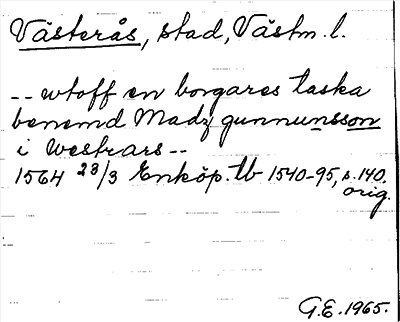 Västerås, stad, Västm. l.
-- wtoff en borgares taska
benemd Madz gunnunsson
i Westrars --
1564 23/3 Enköp. tb 1540-95, s. 140.
orig.
G.E. 1965.